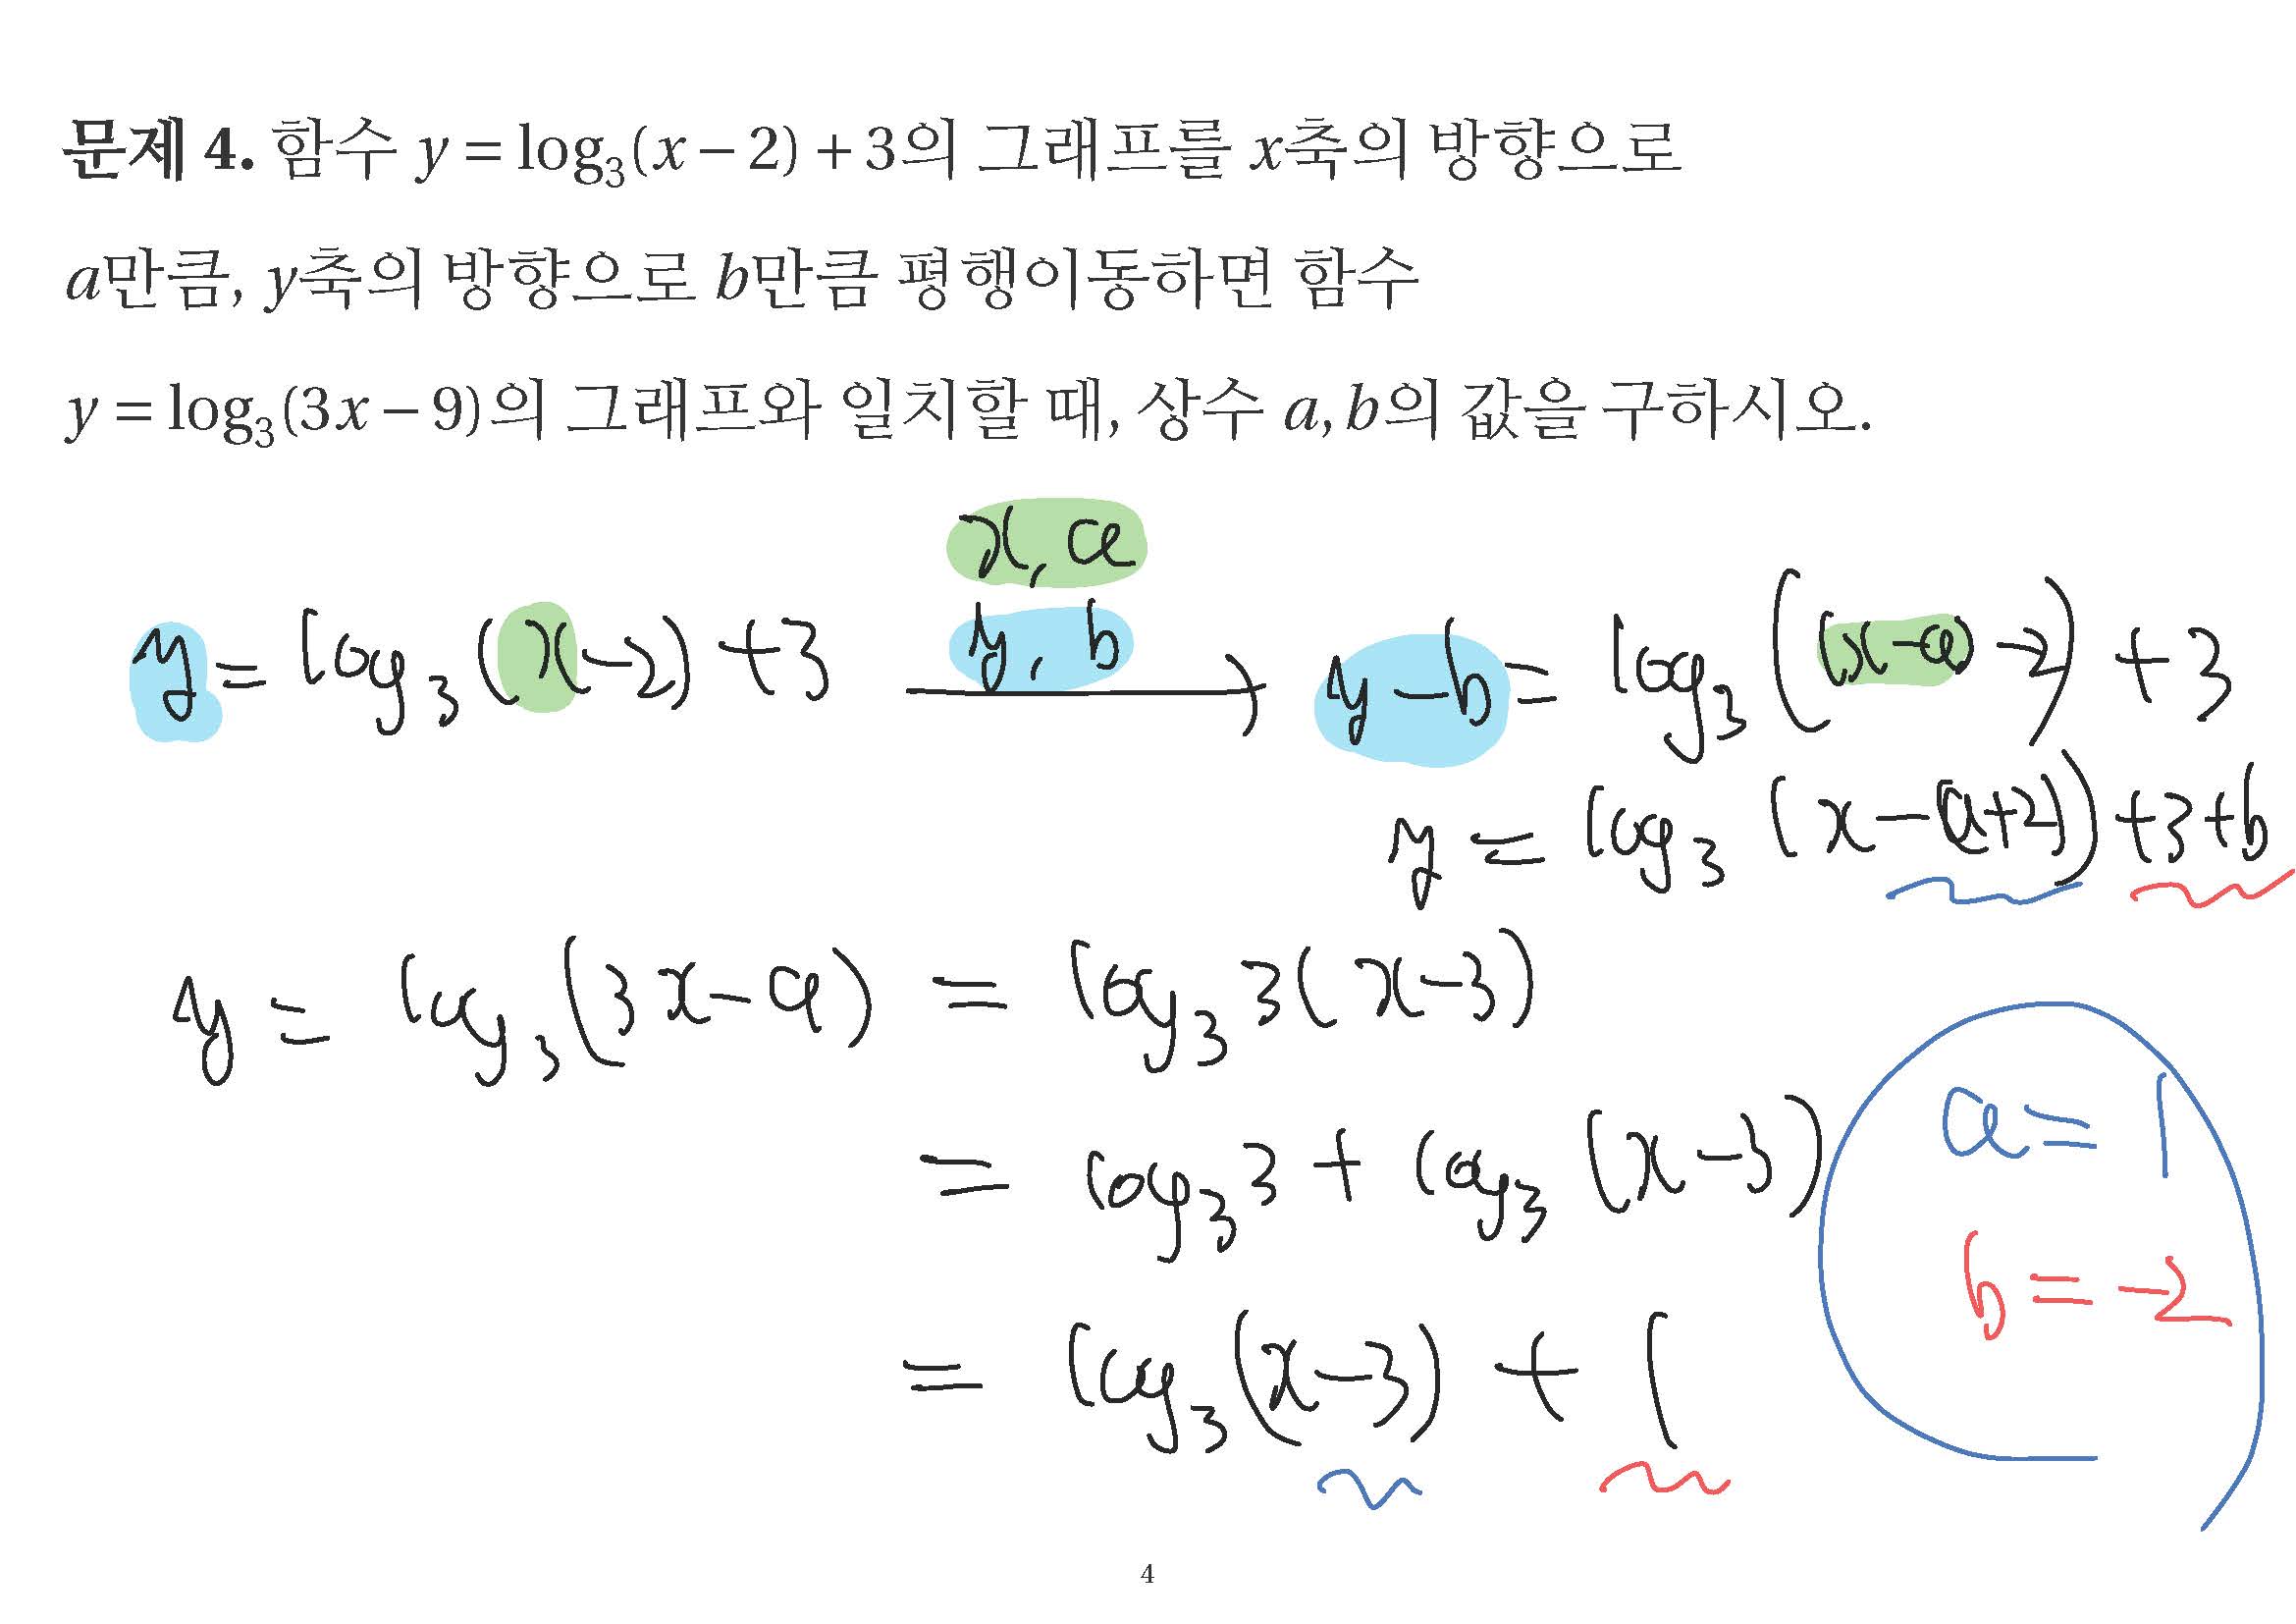 문제 4. 함수 y = log₃(x − 2) + 3의 그래프를 x축의 방향으로
a만큼, y축의 방향으로 b만큼 평행이동하면 함수
y = log₃(3x − 9)의 그래프와 일치할 때, 상수 a, b의 값을 구하시오.
x, a
y, b
y = log₃(x−2) +3 → y−b = log₃((x−a)−2) +3
y = log₃(x−(a+2))+3+b
y = log₃(3x−9) = log₃3(x−3)
= log₃3 + log₃(x−3)
= log₃(x−3) + 1
a = 1
b = −2
4